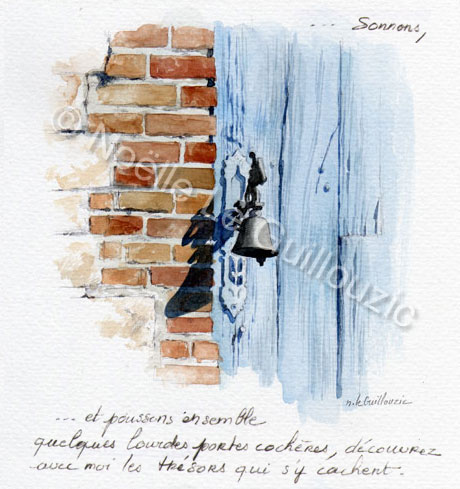 ... Sonnons,
© Noëlle Le Guillouzic
n. le Guillouzic
... et poussons ensemble
quelques lourdes portes cochères, découvrez
avec moi les trésors qui s'y cachent.